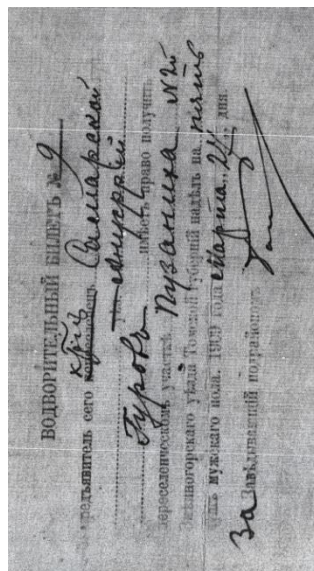 ВОДВОРИТЕЛЬНЫЙ БИЛЕТЪ № 9
предъявитель сего Самарской
губерніи
Гуровъ имѣетъ право получить
переселенческомъ участкѣ Пузаниха №
Змѣиногорскаго уѣзда Томской губерніи надѣлъ на пять
душъ мужского пола. 1909 года Марта 24 дня
За Завѣдывающій подрайономъ